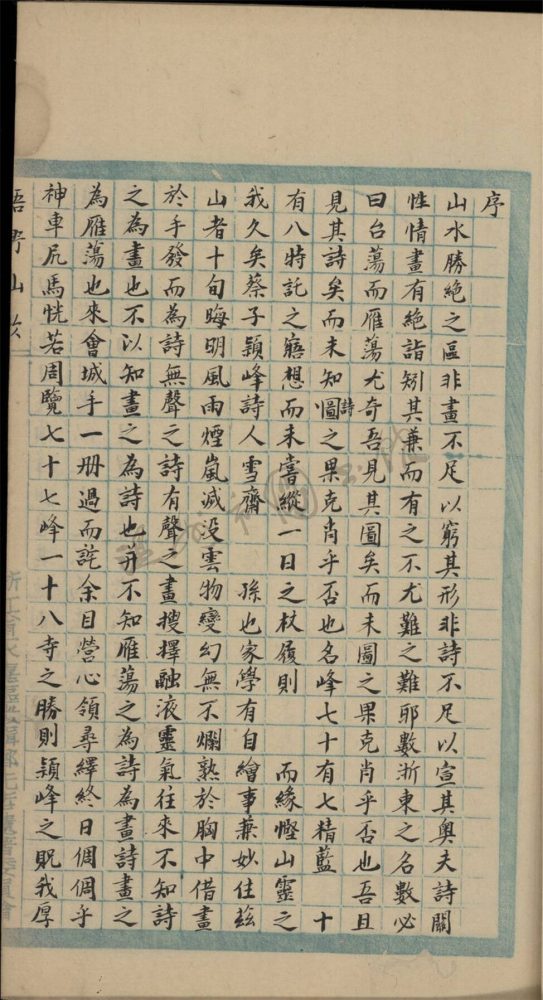 序
山水勝絶之區非畫不足以窮其形非詩不足以宣其奥夫詩關
性情畫有絶詣矧其兼而有之不尤難之難耶數浙東之名數必
曰台蕩而雁蕩尤奇吾見其圖矣而未圖之果克肖乎否也吾且
見其詩矣而未知詩圖之果克肖乎否也名峰七十有七精藍 十
有八特託之寤想而未嘗縱一日之杖履則 而緣慳山靈之
我久矣蔡子潁峰詩人雪齋 孫也家學有自繪事兼妙住兹
山者十旬晦明風雨煙嵐滅没雲物變幻無不爛熟於胸中借畫
於手發而為詩無聲之詩有聲之畫搜擇融液靈氣往來不知詩
之為畫也不以知畫之為詩也并不知雁蕩之為詩為畫詩畫之
為雁蕩也來會城手一册過而詫余目營心領尋繹終日倜倜乎
神車尻馬恍若周覽七十七峰一十八寺之勝則潁峰之貺我厚
吾野山